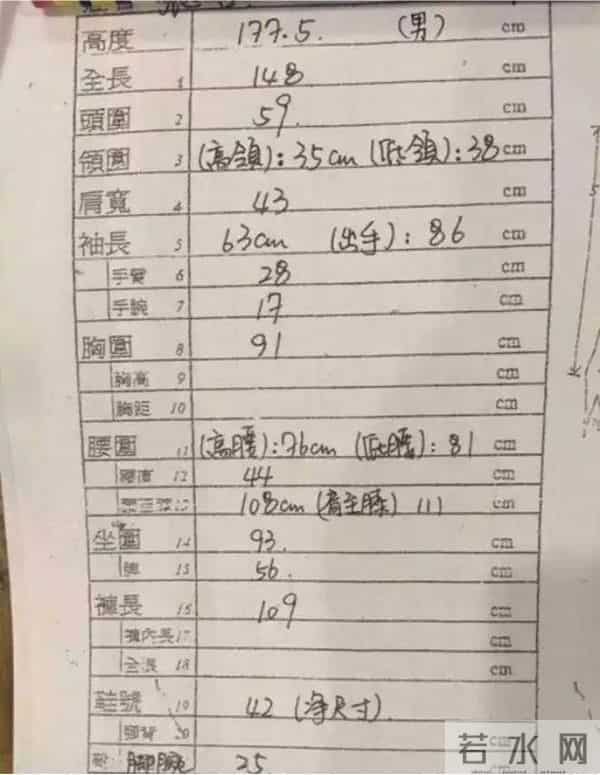 高度 177.5. (男) cm
全長 1 148 cm
頭圍 2 59. cm
領圍 3 (高領): 35cm (低領): 38 cm
肩寬 4 43 cm
袖長 5 63cm (出手): 86 cm
手臂 6 28 cm
手腕 7 17 cm
胸圍 8 91 cm
胸高 9 cm
胸距 10 cm
腰圍 11 (高腰): 76cm (低腰): 81 cm
腰直 12 44 cm
108cm (肩至膝) 111 cm
坐圍 14 93. cm
脾 15 56. cm
褲長 16 109 cm
褲內長 17 cm
全長 18 cm
鞋號 19 42 (净尺寸). cm
20 cm
脚腕 25
若水网